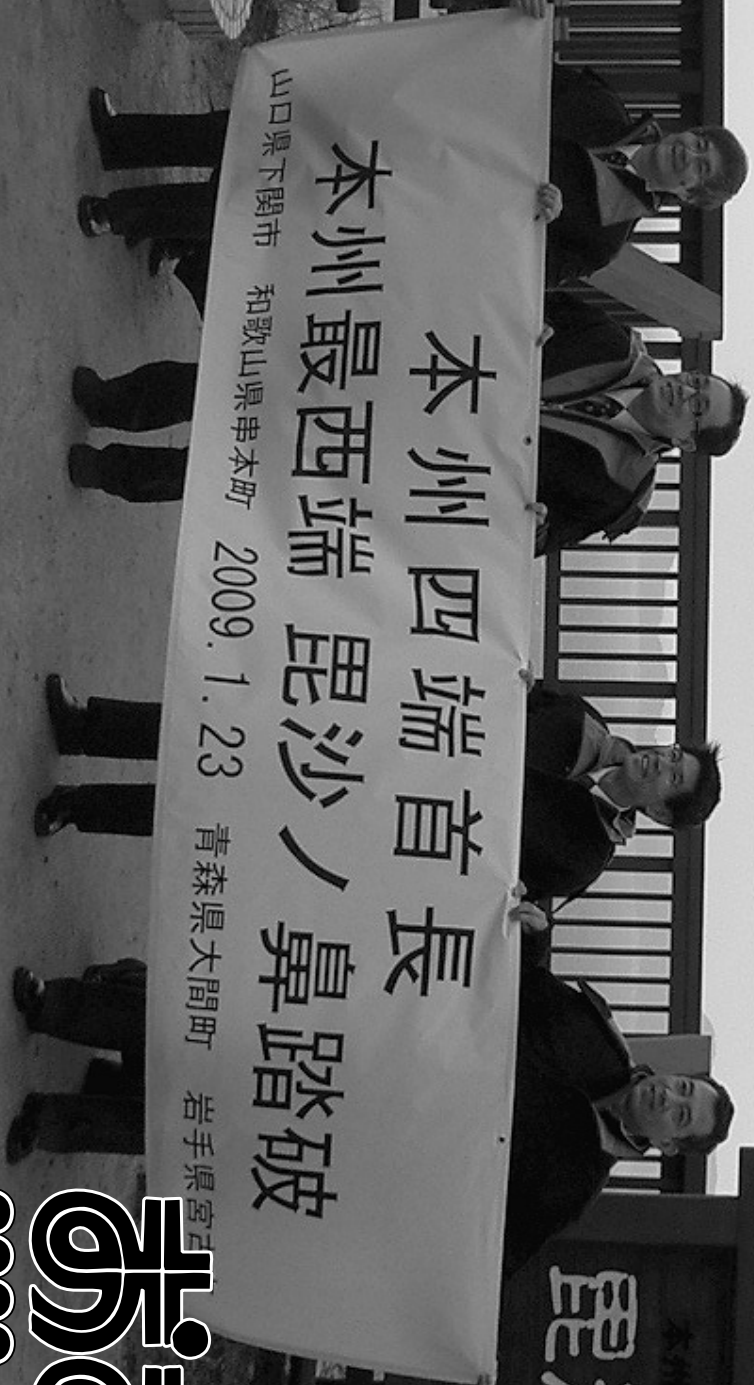 本州四端首長
本州最西端 毘沙ノ鼻踏破
山口県下関市 和歌山県串本町 2009.1.23 青森県大間町 岩手県宮古
毘
本州
お